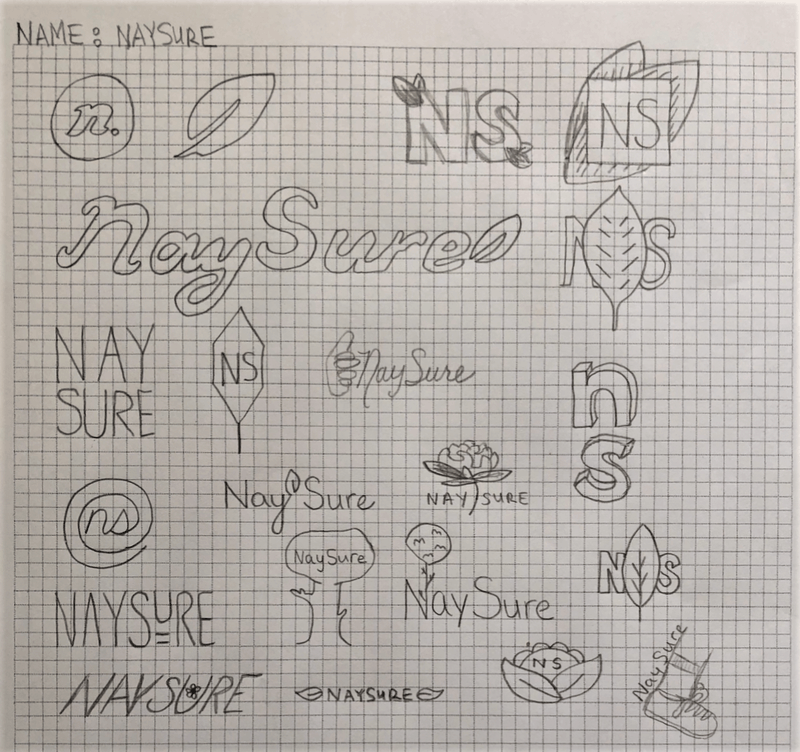 NAME: NAYSURE
n.
NS
NS
NaySure
NS
NAY
SURE
NS
NaySure
n
s
ns
Nay Sure
NAY SURE
NaySure
NS
NAYSURE
NaySure
NS
NaySure
NAYSURE
NAYSURE